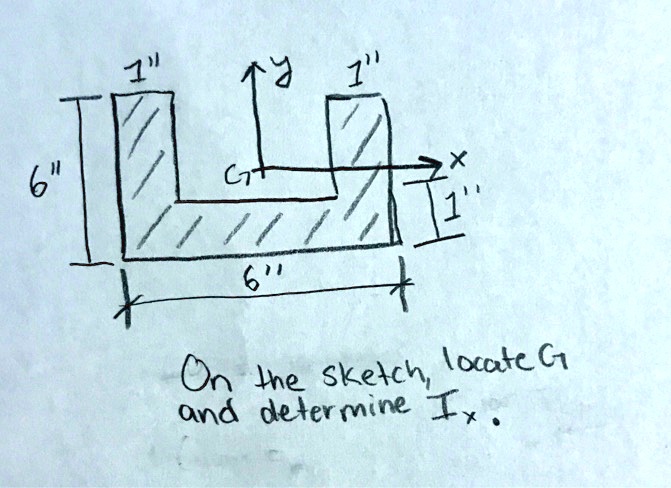 1" y 1"
6" G x
1"
6"
On the sketch, locate G
and determine Ix.